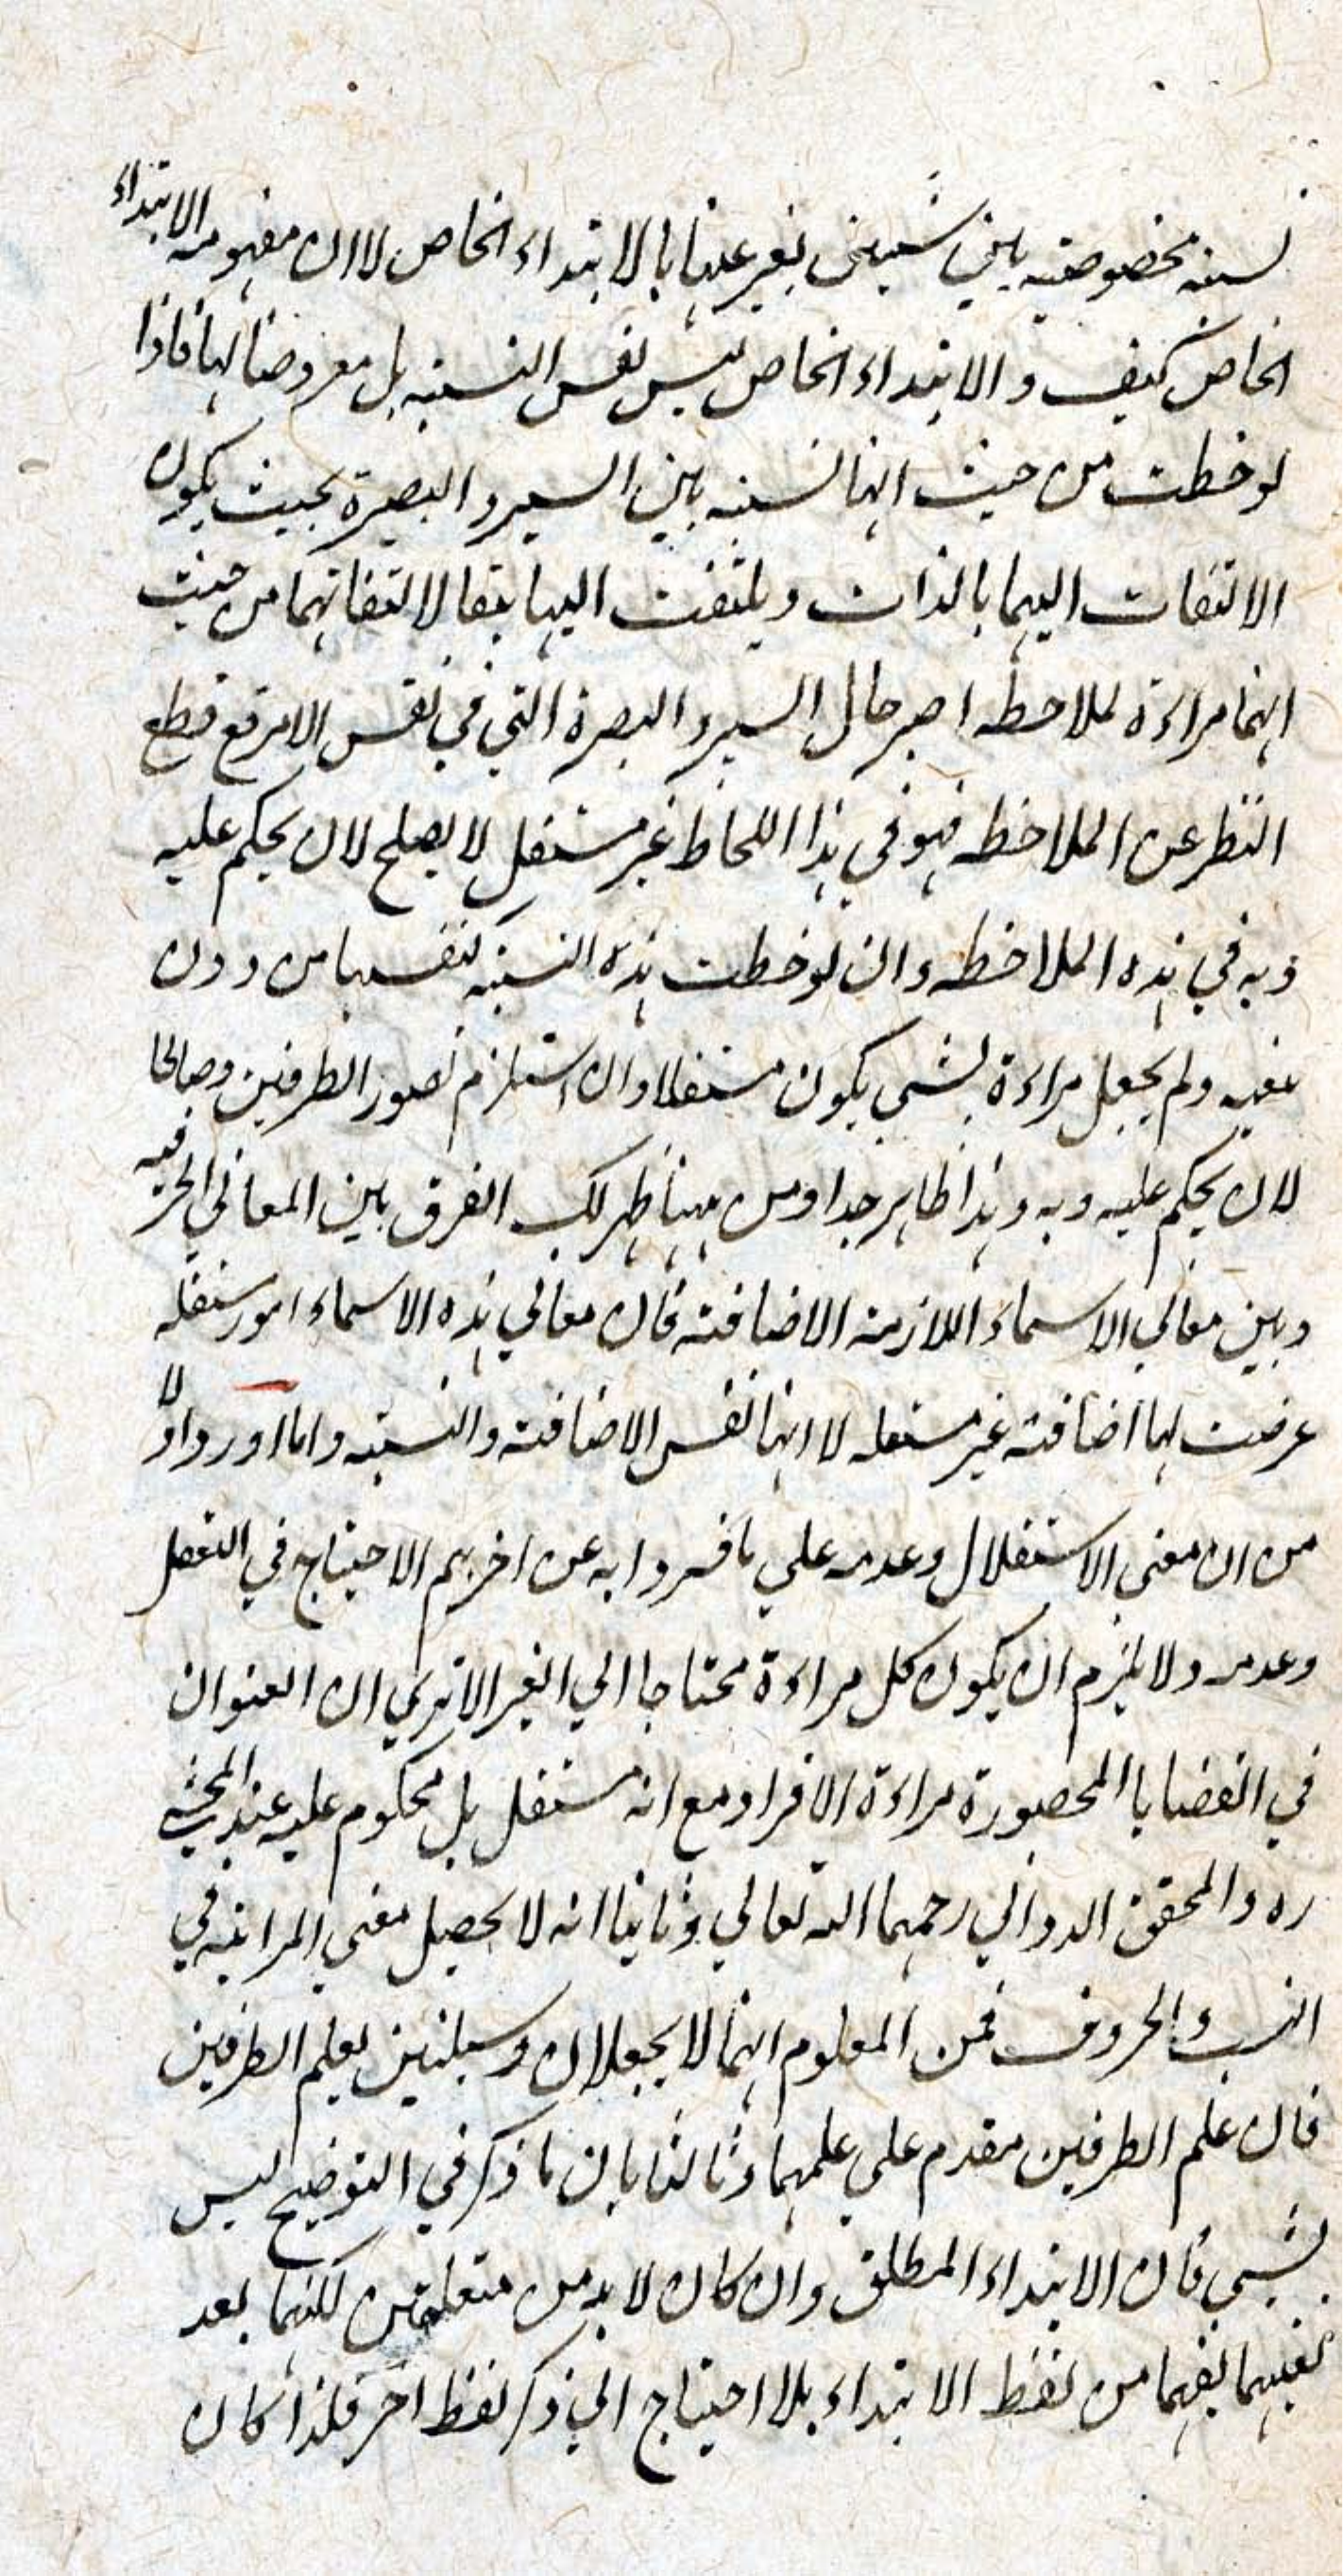 نسبته مخصوصته بين شيئين يعبر عنها بالابتداء الخاص لا ان مفهومه الابتداء
الخاص كيف والابتداء الخاص ليس نفس النسبته بل معروضا لها فاذا
لوحظت من حيث انها نسبته بين السير والبصرة بحيث يكون
الالتفات اليهما بالذات ويلتفت اليها تبعا لالتفاتهما من حيث
انها مراءة لملاحظه حال السير والبصرة التي في نفس الامر مع قطع
النظر عن الملاحظه فهو في هذا اللحاظ غير مستقل لا يصلح لان يحكم عليه
وبه في هذه الملاحظه وان لوحظت هذه النسبته بنفسها من دون
ولم يجعل مراءة لشي يكون مستقلا وان استلزم تصور الطرفين وصالحا
لان يحكم عليه وبه وهذا ظاهر جدا ومن ههنا ظهر لك الفرق بين المعاني الحرفيه
وبين معاني الاسماء اللازمته الاضافته فان معاني هذه الاسماء امور مستقله
عرضت لها اضافته غير مستقله لا انها نفس الاضافته والنسبته واما اورد اولا
من ان معنى الاستقلال وعدمه علي ما فسروا به عن اخرهم الاحتياج في التعقل
وعدمه ولا يلزم ان يكون كل مراءة محتاجا الي الغير الا تري ان العنوان
في القضايا المحصورة مراءة الافراد مع انه مستقل بل محكوم عليه عند المحشي
ره والمحقق الدواني رحمهما الله تعالي وثانيا انه لا يحصل معني المراتيه في
النسب والحروف فمن المعلوم انهما لا يجعلان وسيلتين لعلم الطرفين
فان علم الطرفين مقدم علي علمهما وثالثا بان ما ذكر في التوضيح ليس
بشي فان الابتداء المطلق وان كان لا بد من متعلقين لكنهما بعد
يفهما من لفظ الابتداء بلا احتياج الي ذكر لفظ اخر فلذا كان